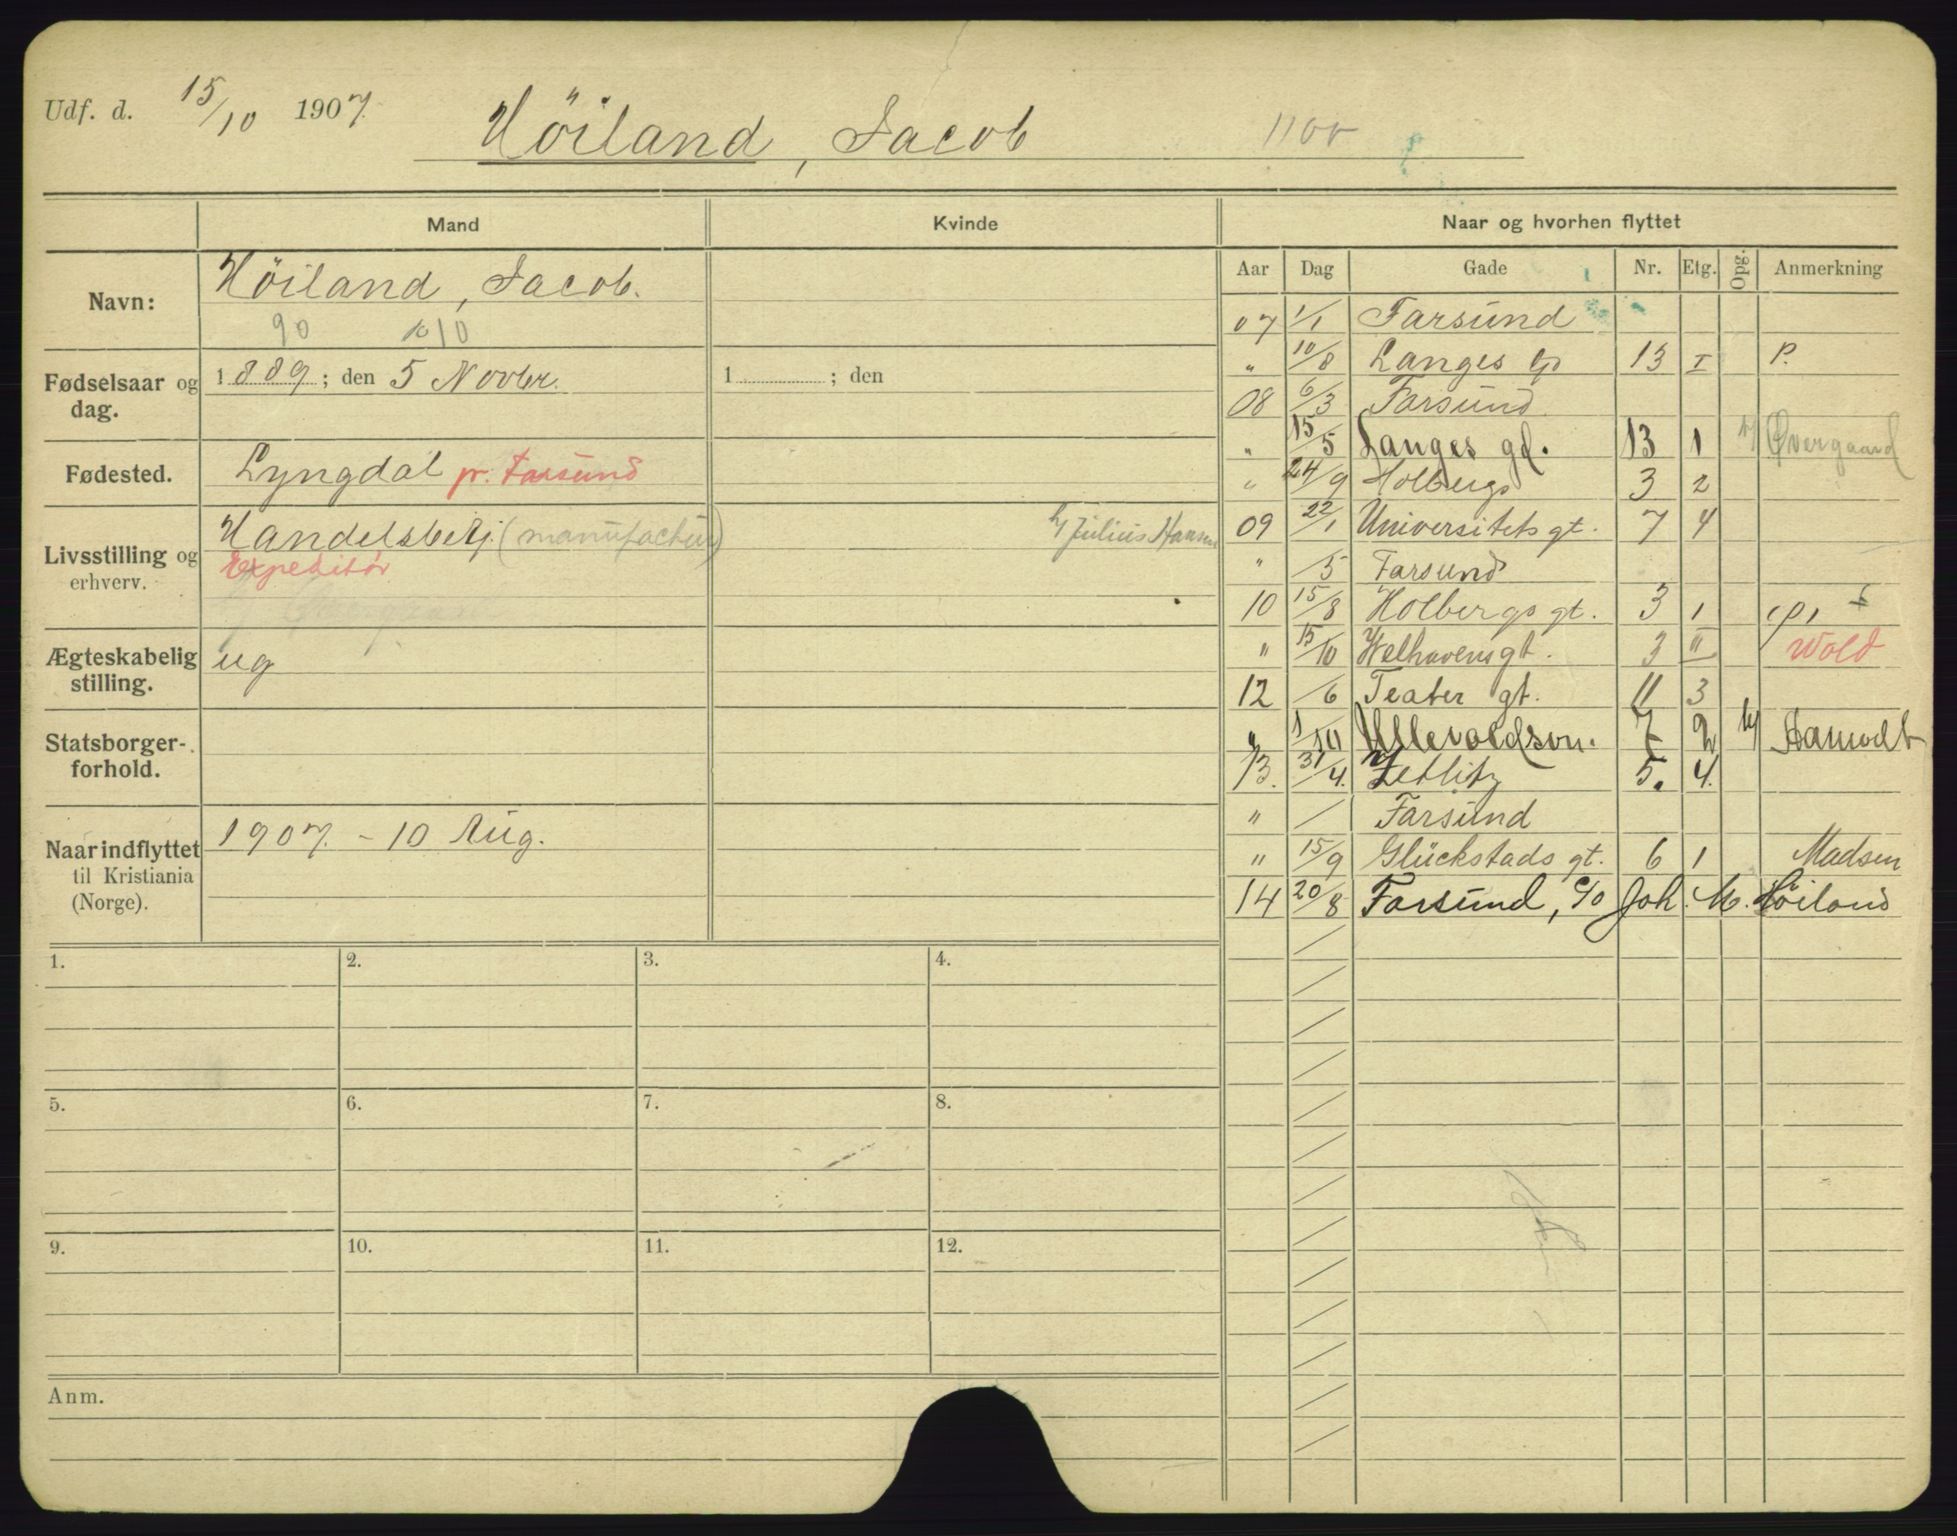 Udf. d. 15/10 1907. Höiland, Jacob 1100
Mand Kvinde Naar og hvorhen flyttet
Navn: Höiland, Jacob.
90 10
Fødselsaar og dag. 1889; den 5 Novbr. 1 ; den
Fødested. Lyngdal pr. Farsund
Livsstilling og erhverv. Handelsbetj. (manufactur) h/ Julius Hansen
Expeditör
Ægteskabelig stilling. ug
Statsborger-forhold.
Naar indflyttet til Kristiania (Norge). 1907. - 10 Aug.
Aar Dag Gade Nr. Etg. Opg. Anmerkning
07 1/1 Farsund
" 10/8 Langes g 13 I P.
08 6/3 Farsund
" 15/5 Langes gd. 13 1 h/ Øvergaard
" 24/9 Holbergs 3 2
09 22/1 Universitets gt. 7 4
" /5 Farsund
10 15/8 Holbergs gt. 3 1 p,
" 15/10 Welhavens gt. 3 II Wold
12 /6 Teater gt. 11 3
" 1/10 Ullevoldsvn. 7 2 h/ Aamodt
13. 31/4. Zetlitz 5. 4.
" / Farsund
" 15/9 Glückstads gt. 6 1 Madsen
14 20/8 Farsund, c/o Joh. M. Höiland
1. 2. 3. 4.
5. 6. 7. 8.
9. 10. 11. 12.
Anm.